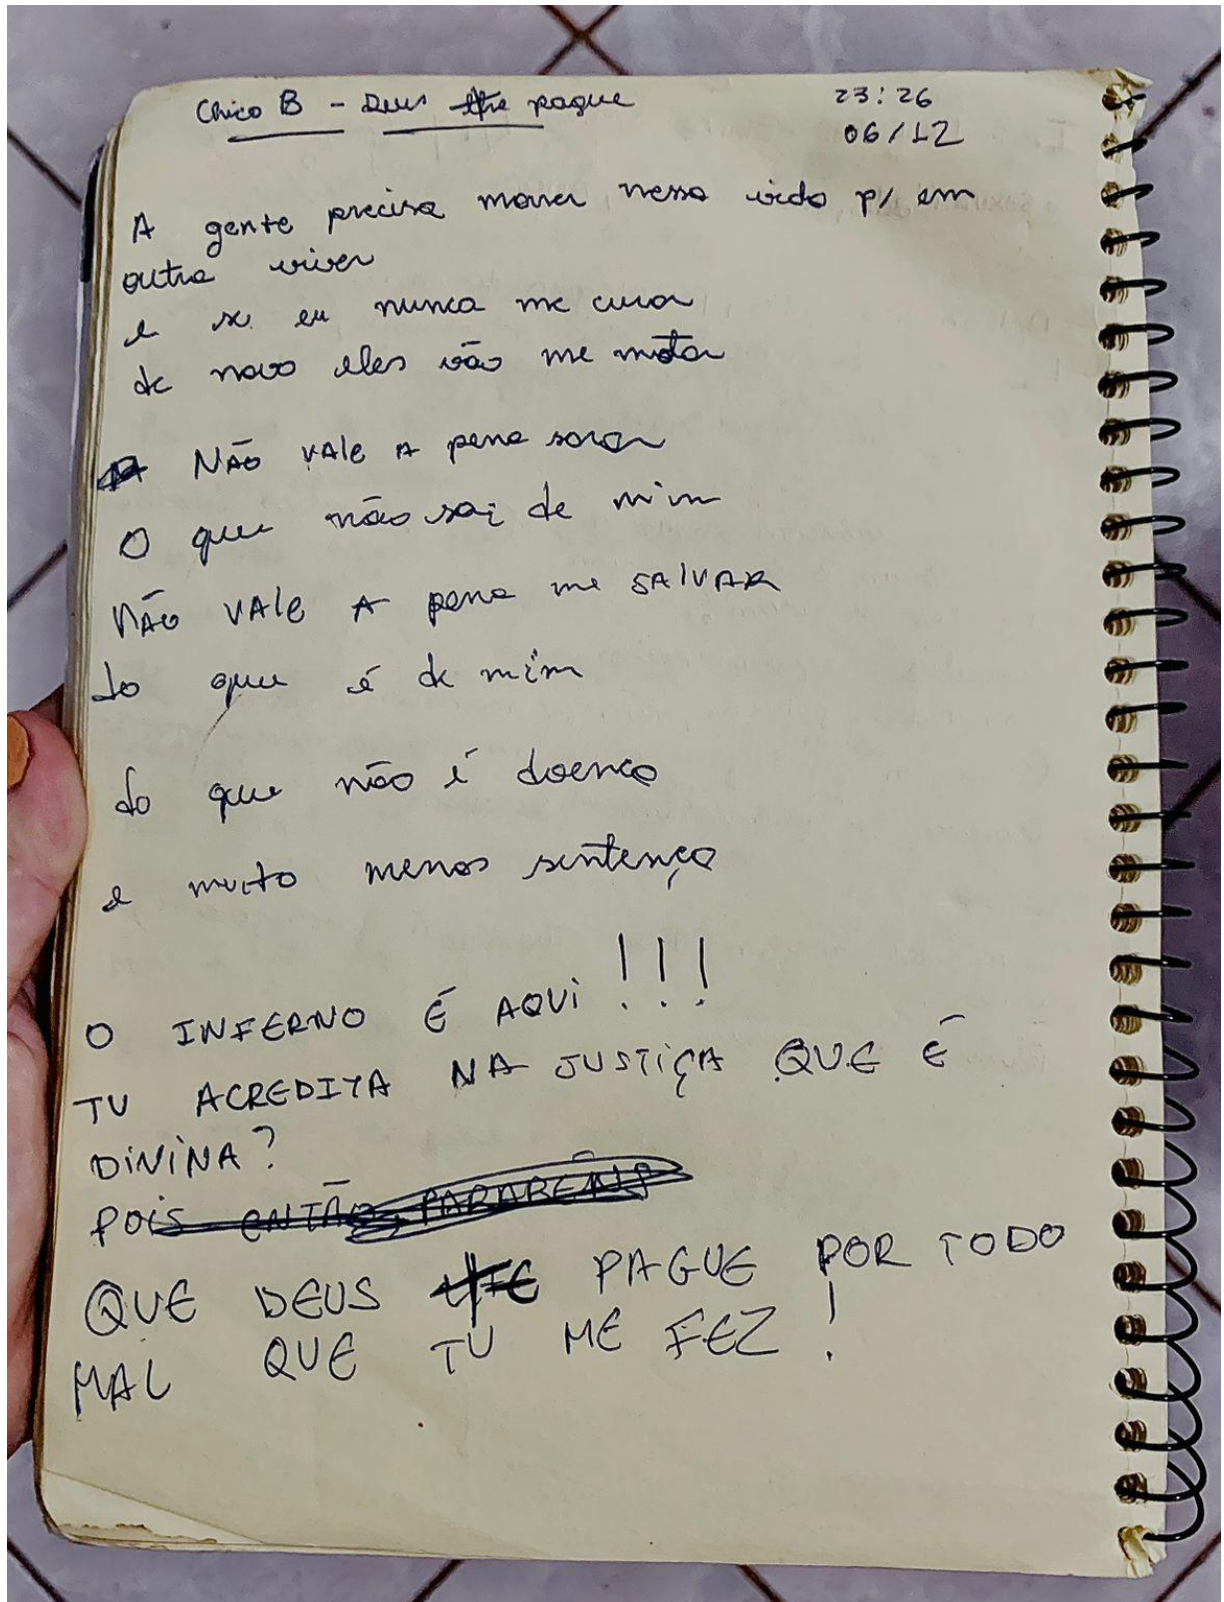 Chico B - Deus lhe pague
23:26
06/12
A gente precisa morrer nessa vida p/ em
outra viver
e se eu nunca me curar
de novo eles vão me matar
Não vale a pena sarar
O que não sai de mim
Não vale a pena me SALVAR
do que é de mim
do que não é doença
e muito menos sentença
O INFERNO É AQUI !!!
TU ACREDITA NA JUSTIÇA QUE É
DIVINA?
POIS ENTÃO
QUE DEUS LHE PAGUE POR TODO
MAL QUE TU ME FEZ !